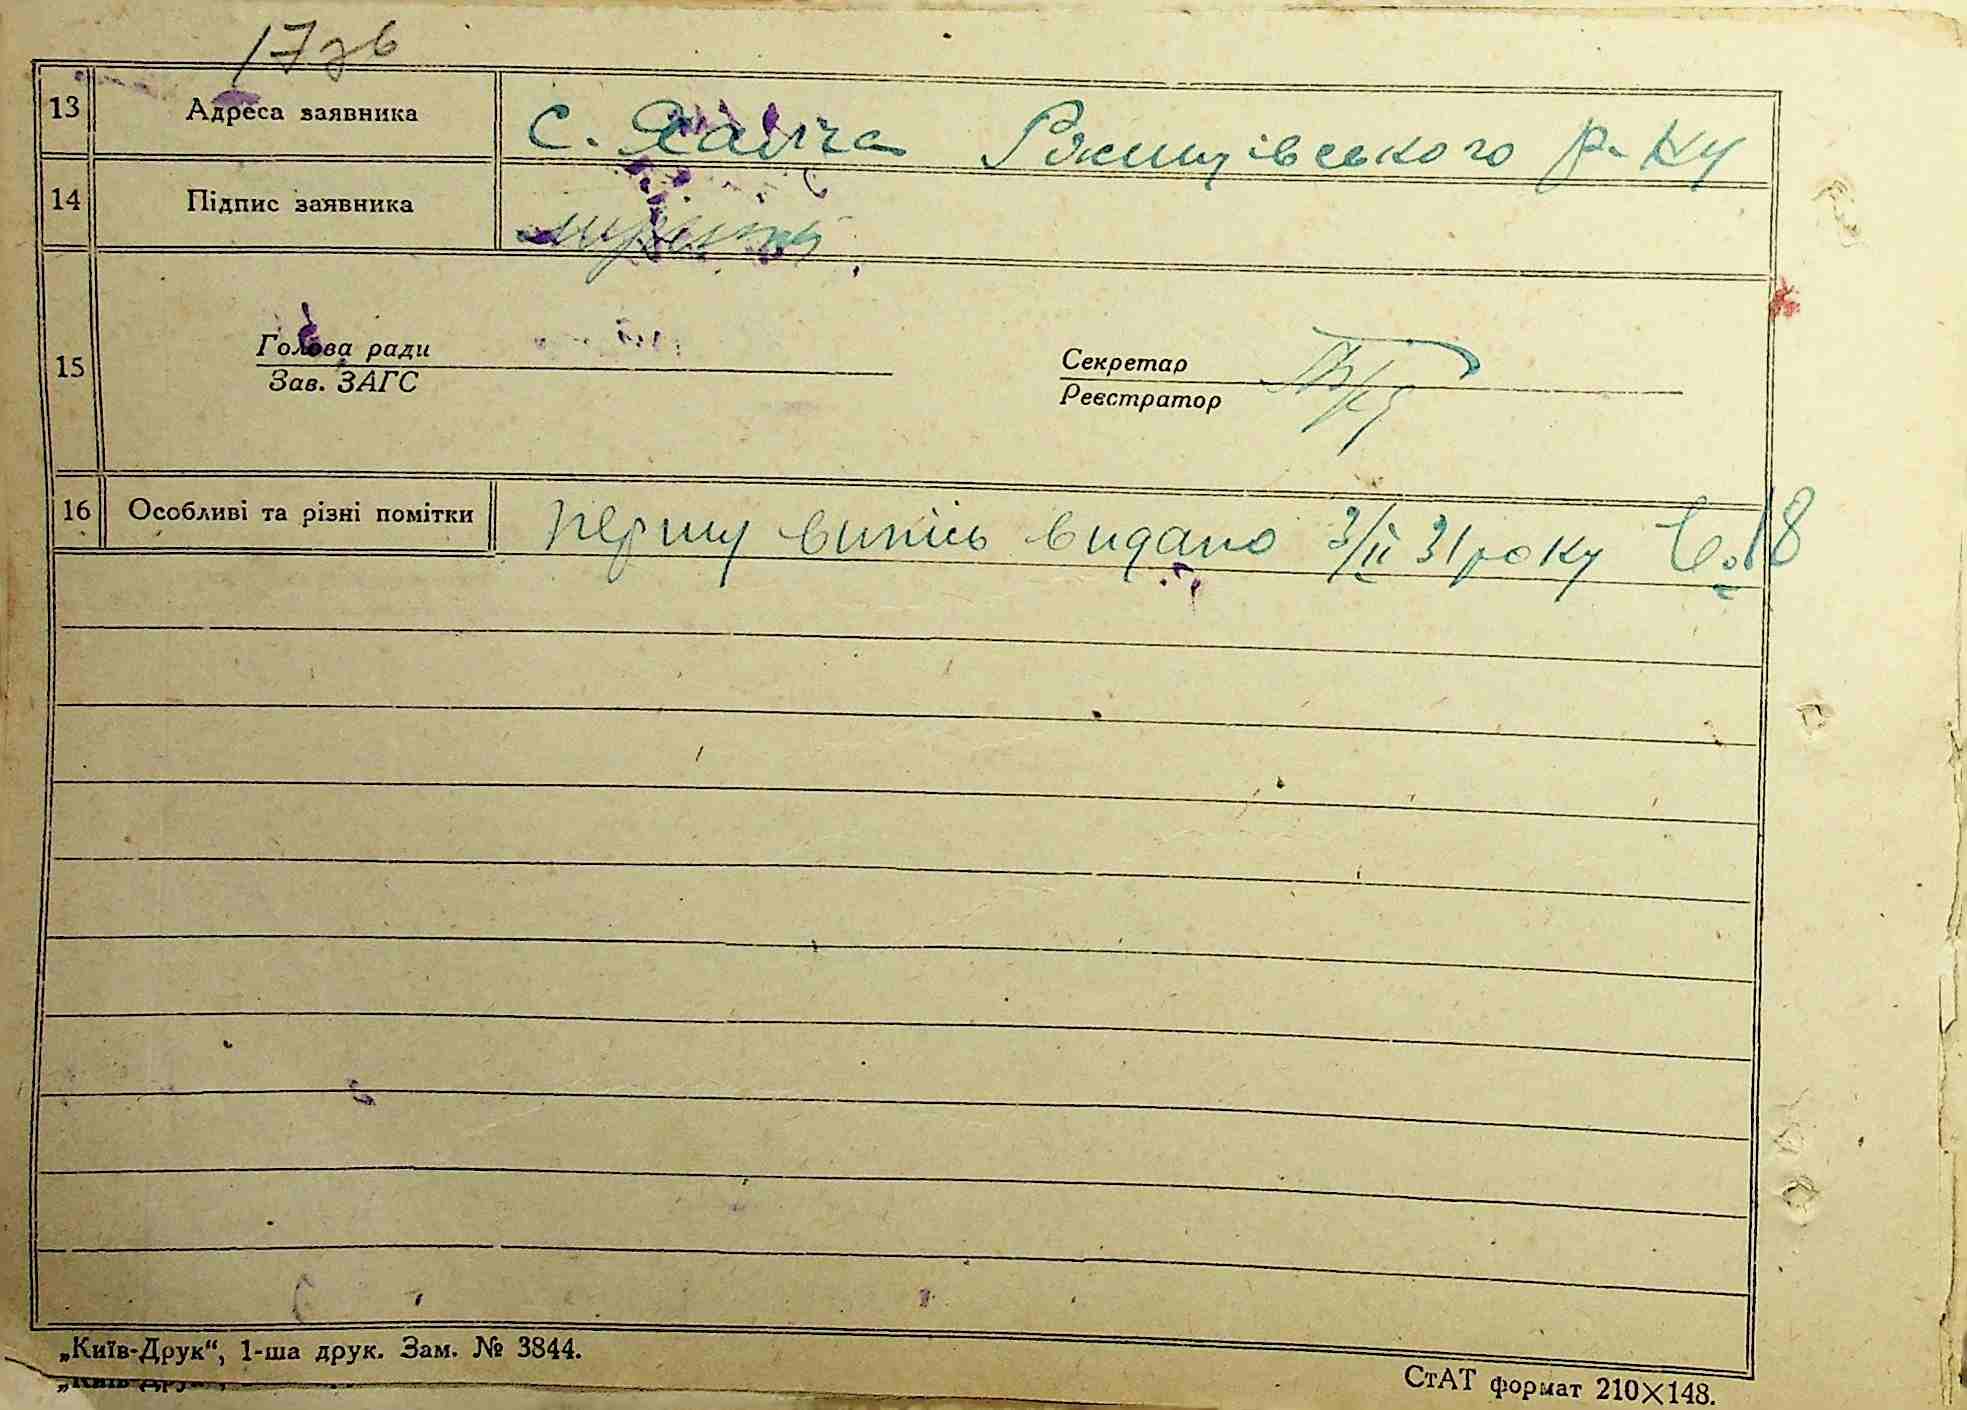 17 зв
13 Адреса заявника с. Халча Ржищівського р-ну
14 Підпис заявника
15 Голова ради Секретар
Зав. ЗАГС Реєстратор
16 Особливі та різні помітки першу випись видано 3/II 31 року 18
„Київ-Друк“, 1-ша друк. Зам. № 3844.
СтАТ формат 210×148.